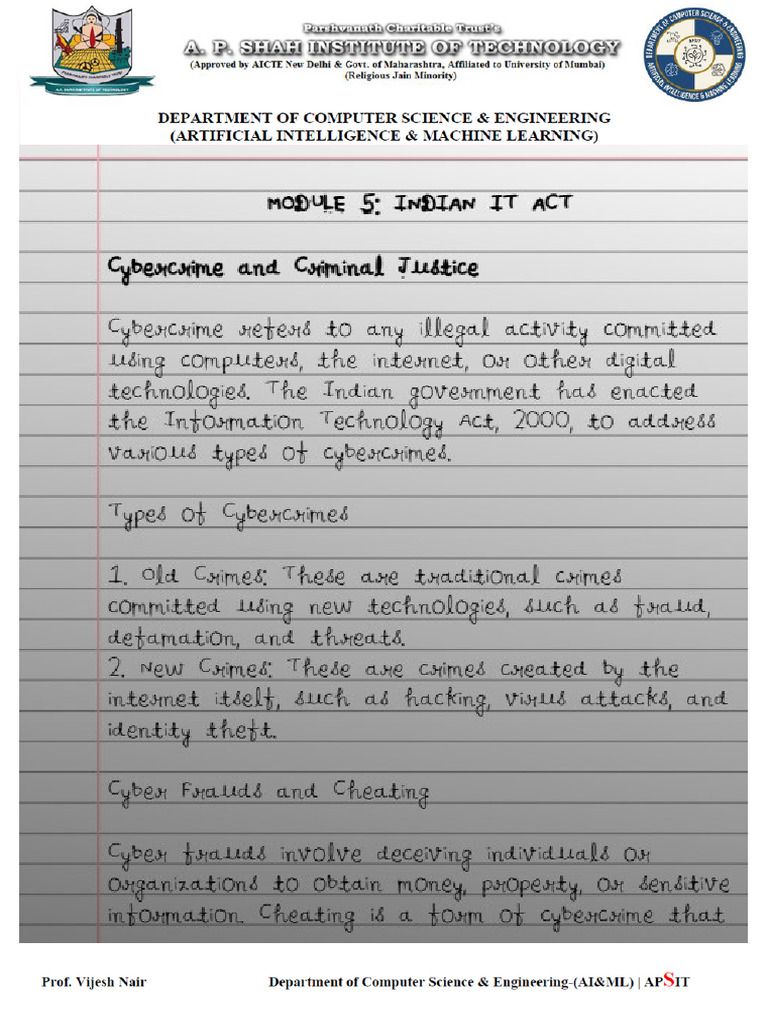 Parshvanath Charitable Trust's
A. P. SHAH INSTITUTE OF TECHNOLOGY
(Approved by AICTE New Delhi & Govt. of Maharashtra, Affiliated to University of Mumbai)
(Religious Jain Minority)
DEPARTMENT OF COMPUTER SCIENCE & ENGINEERING
(ARTIFICIAL INTELLIGENCE & MACHINE LEARNING)
MODULE 5: INDIAN IT ACT
Cybercrime and Criminal Justice
Cybercrime refers to any illegal activity committed
using computers, the internet, or other digital
technologies. The Indian government has enacted
the Information Technology Act, 2000, to address
various types of cybercrimes.
Types of Cybercrimes
1. Old Crimes: These are traditional crimes
committed using new technologies, such as fraud,
defamation, and threats.
2. New Crimes: These are crimes created by the
internet itself, such as hacking, virus attacks, and
identity theft.
Cyber Frauds and Cheating
Cyber frauds involve deceiving individuals or
organizations to obtain money, property, or sensitive
information. Cheating is a form of cybercrime that
Prof. Vijesh Nair
Department of Computer Science & Engineering-(AI&ML) | APSIT